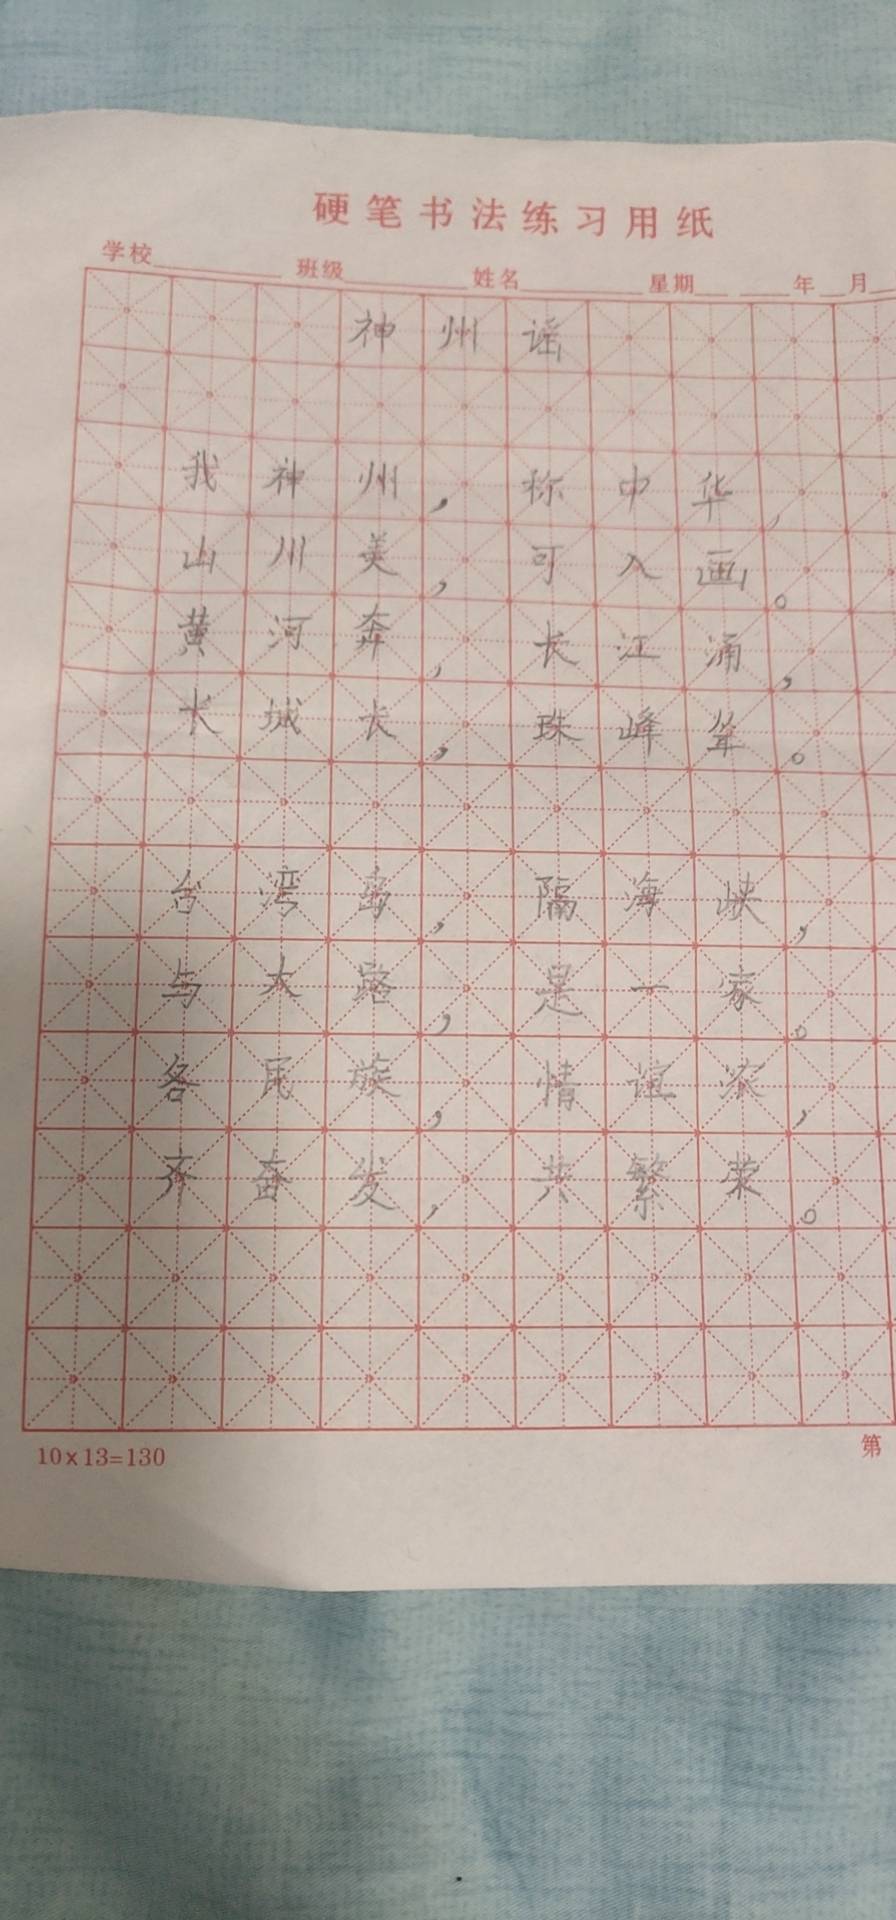 硬笔书法练习用纸
学校 班级 姓名 星期 年 月
神州谣
我神州，称中华，
山川美，可入画。
黄河奔，长江涌，
长城长，珠峰耸。
台湾岛，隔海峡，
与大路，是一家。
各民族，情谊浓，
齐奋发，共繁荣。
10×13=130 第